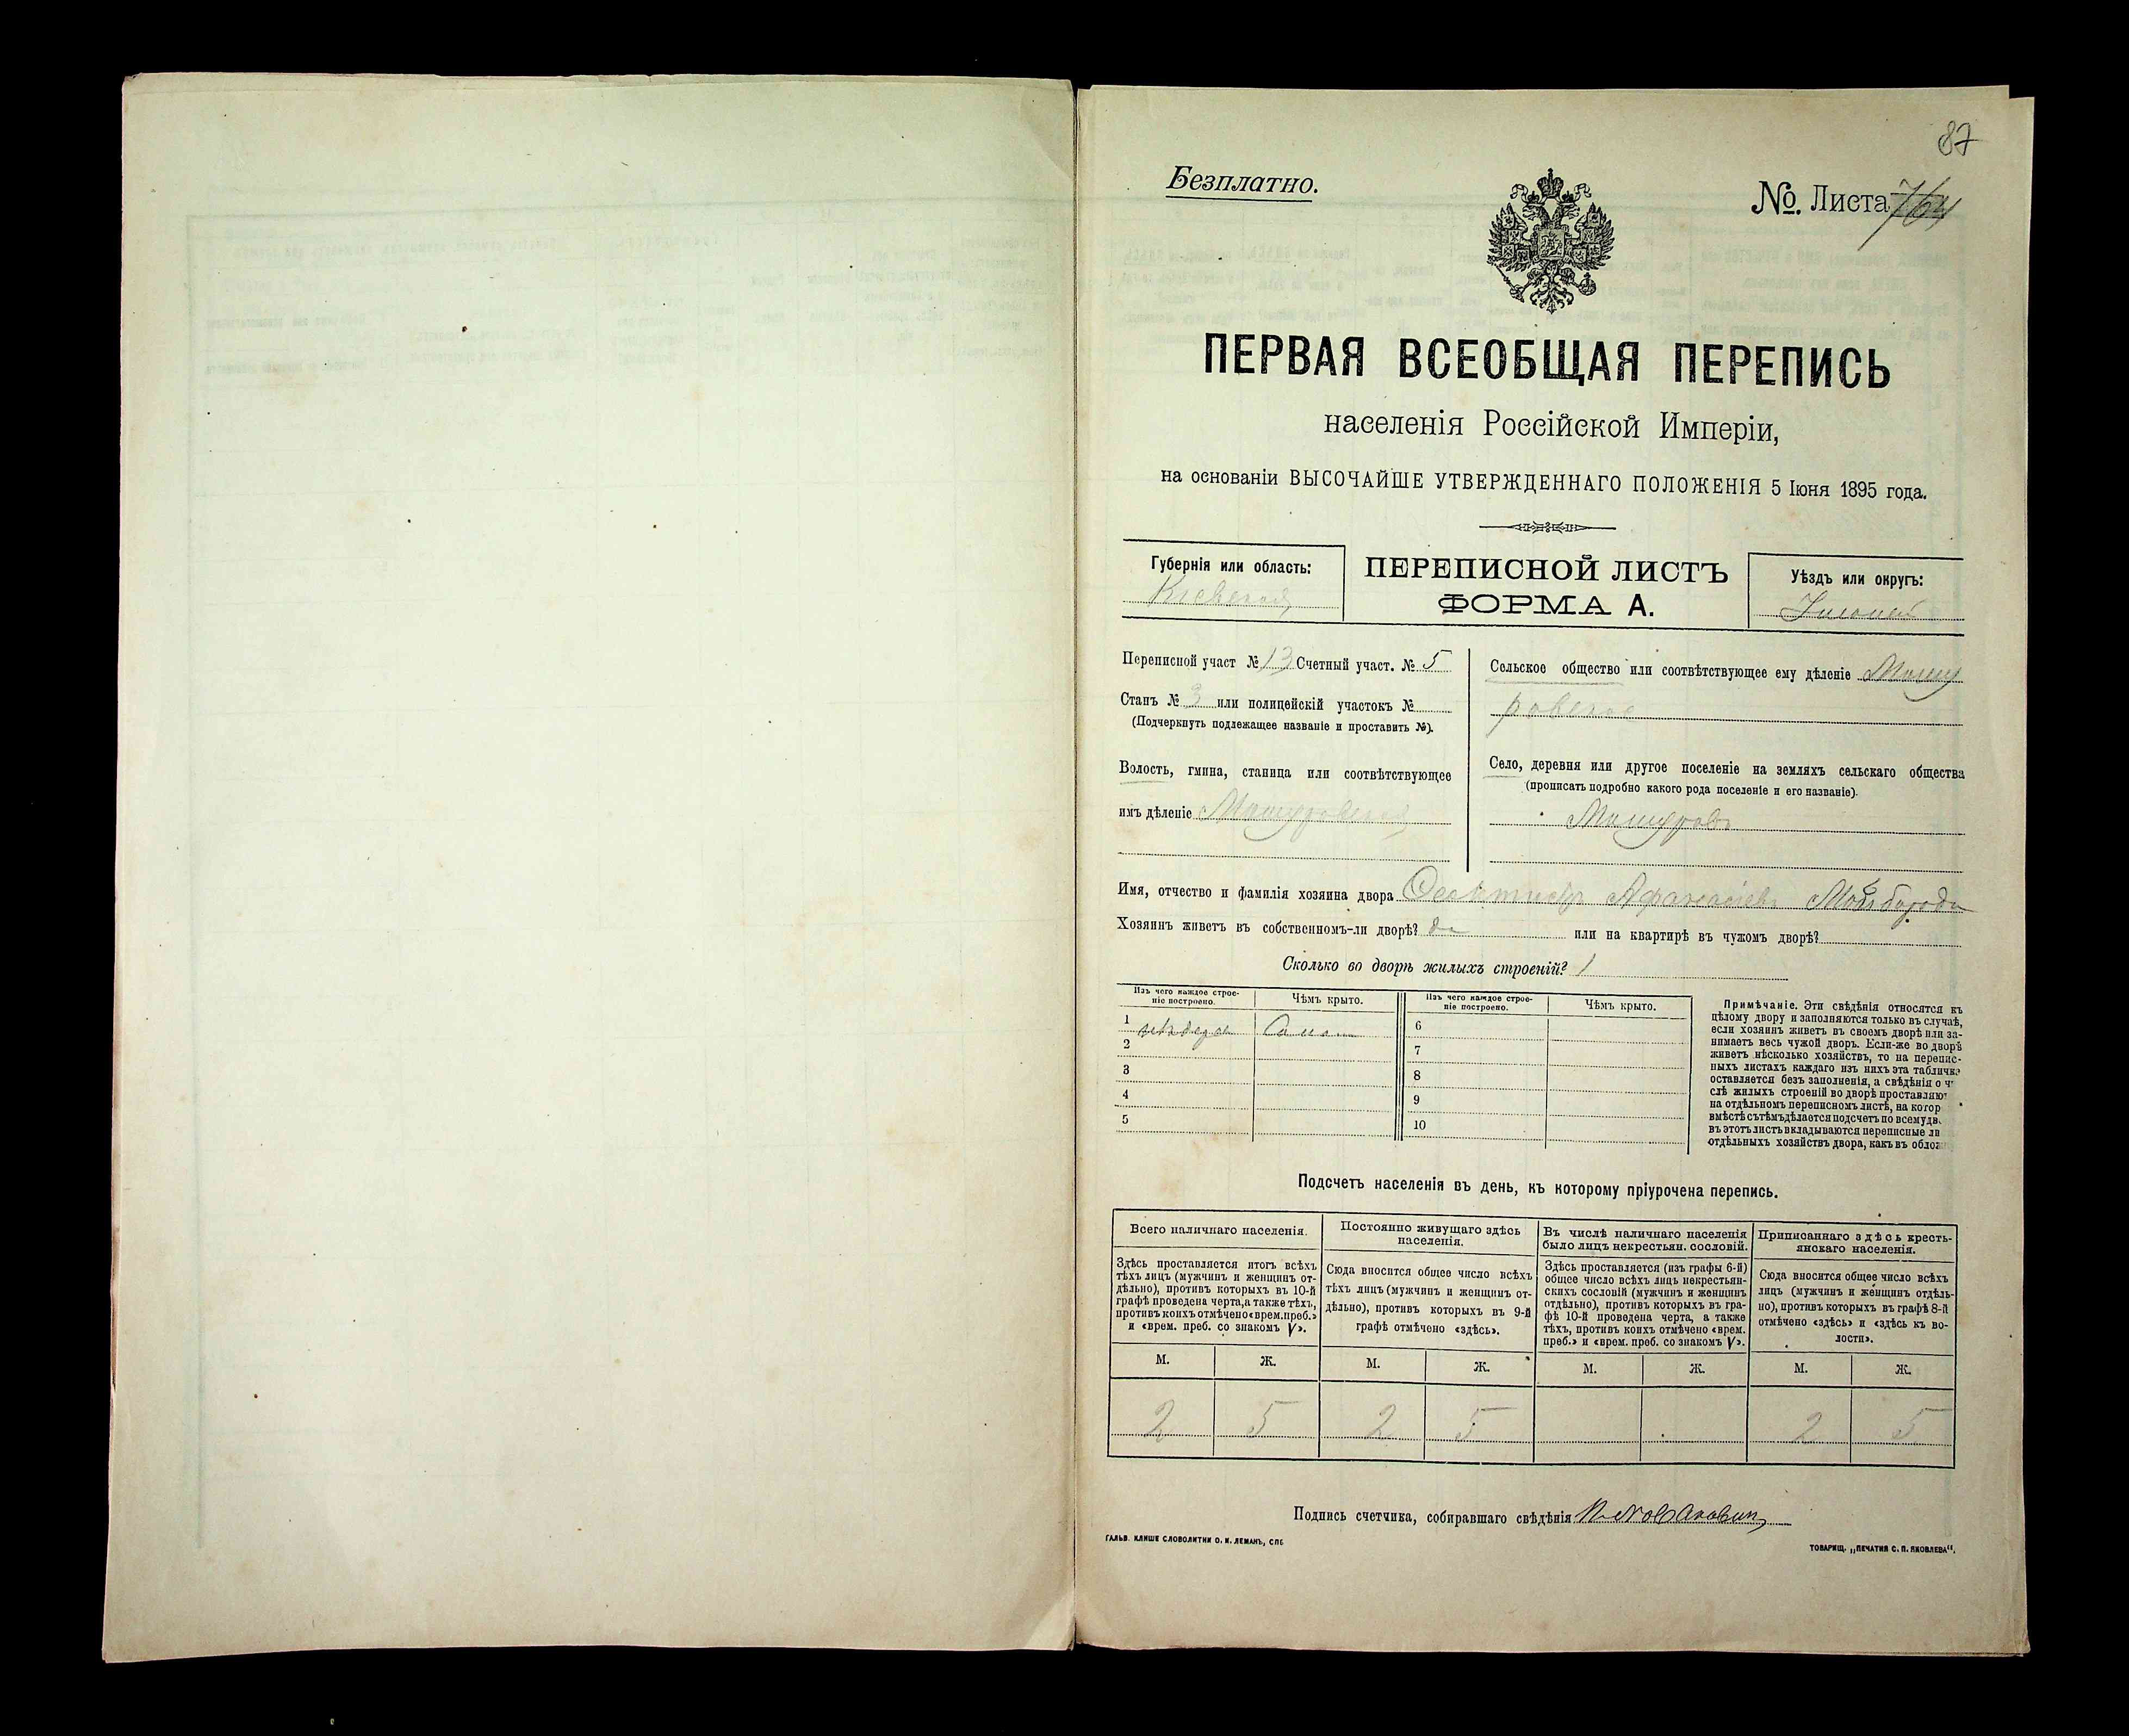 87
Безплатно.
№. Листа 764
ПЕРВАЯ ВСЕОБЩАЯ ПЕРЕПИСЬ
населенія Россійской Имперіи,
на основаніи ВЫСОЧАЙШЕ УТВЕРЖДЕННАГО ПОЛОЖЕНІЯ 5 Іюня 1895 года.
Губернія или область:
Кіевская
ПЕРЕПИСНОЙ ЛИСТЪ
ФОРМА А.
Уѣздъ или округъ:
Переписной участ № 13 Счетный участ. № 5
Станъ № 3 или полицейскій участокъ №
(Подчеркнуть подлежащее названіе и проставить №).
Волость, гмина, станица или соотвѣтствующее
имъ дѣленіе Машуровская
Сельское общество или соотвѣтствующее ему дѣленіе Машу
ровское
Село, деревня или другое поселеніе на земляхъ сельскаго общества
(прописать подробно какого рода поселеніе и его названіе).
Машуровъ
Имя, отчество и фамилія хозяина двора Афанасіевъ Майборода
Хозяинъ живетъ въ собственномъ-ли дворѣ? да или на квартирѣ въ чужомъ дворѣ?
Сколько во дворѣ жилыхъ строеній? 1
Изъ чего каждое строе-
ніе построено.
Чѣмъ крыто.
Изъ чего каждое строе-
ніе построено.
Чѣмъ крыто.
1
2
3
4
5
6
7
8
9
10
Примѣчаніе. Эти свѣдѣнія относятся къ
цѣлому двору и заполняются только въ случаѣ,
если хозяинъ живетъ въ своемъ дворѣ или за-
нимаетъ весь чужой дворъ. Если-же во дворѣ
живетъ нѣсколько хозяйствъ, то на перепис-
ныхъ листахъ каждаго изъ нихъ эта табличка
оставляется безъ заполненія, а свѣдѣнія о чи
слѣ жилыхъ строеній во дворѣ проставляют
на отдѣльномъ переписномъ листѣ, на котор
вмѣстѣ съ тѣмъ дѣлается подсчетъ по всему дв.
въ этотъ листъ вкладываются переписные ли
отдѣльныхъ хозяйствъ двора, какъ въ облож
Подсчетъ населенія въ день, къ которому пріурочена перепись.
Всего наличнаго населенія.
Здѣсь проставляется итогъ всѣхъ
тѣхъ лицъ (мужчинъ и женщинъ от-
дѣльно), противъ которыхъ въ 10-й
графѣ проведена черта, а также тѣхъ,
противъ коихъ отмѣчено «врем. преб.»
и «врем. преб. со знакомъ V».
Постоянно живущаго здѣсь
населенія.
Сюда вносится общее число всѣхъ
тѣхъ лицъ (мужчинъ и женщинъ от-
дѣльно), противъ которыхъ въ 9-й
графѣ отмѣчено «здѣсь».
Въ числѣ наличнаго населенія
было лицъ некрестьян. сословій.
Здѣсь проставляется (изъ графы 6-й)
общее число всѣхъ лицъ некрестьян-
скихъ сословій (мужчинъ и женщинъ
отдѣльно), противъ которыхъ въ гра-
фѣ 10-й проведена черта, а также
тѣхъ, противъ коихъ отмѣчено «врем.
преб.» и «врем. преб. со знакомъ V».
Приписаннаго здѣсь кресть-
янскаго населенія.
Сюда вносится общее число всѣхъ
лицъ (мужчинъ и женщинъ отдѣль-
но), противъ которыхъ въ графѣ 8-й
отмѣчено «здѣсь» и «здѣсь къ во-
лости».
М. Ж. М. Ж. М. Ж. М. Ж.
2 5 2 5 2 5
Подпись счетчика, собиравшаго свѣдѣнія
ГАЛЬВ. КЛИШЕ СЛОВОЛИТНИ О. И. ЛЕМАНЪ, СПБ
ТОВАРИЩ. „ПЕЧАТНЯ С. П. ЯКОВЛЕВА“.